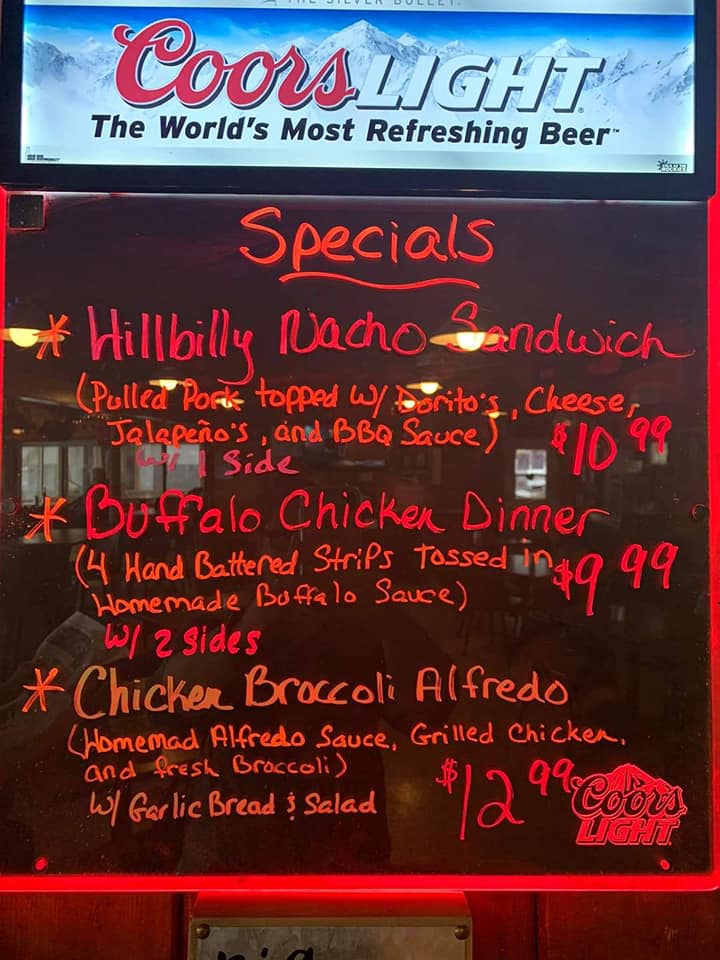 THE SILVER BULLET.
Coors LIGHT
The World's Most Refreshing Beer™
Specials
* Hillbilly Nacho Sandwich
(Pulled Pork topped w/ Dorito's, Cheese,
Jalapeño's, and BBQ Sauce) $10 99
w/ 1 Side
* Buffalo Chicken Dinner
(4 Hand Battered Strips Tossed in $9 99
Homemade Buffalo Sauce)
W/ 2 Sides
* Chicken Broccoli Alfredo
(Homemad Alfredo Sauce, Grilled Chicken,
and fresh Broccoli)
W/ Garlic Bread & Salad $12 99
Coors
LIGHT